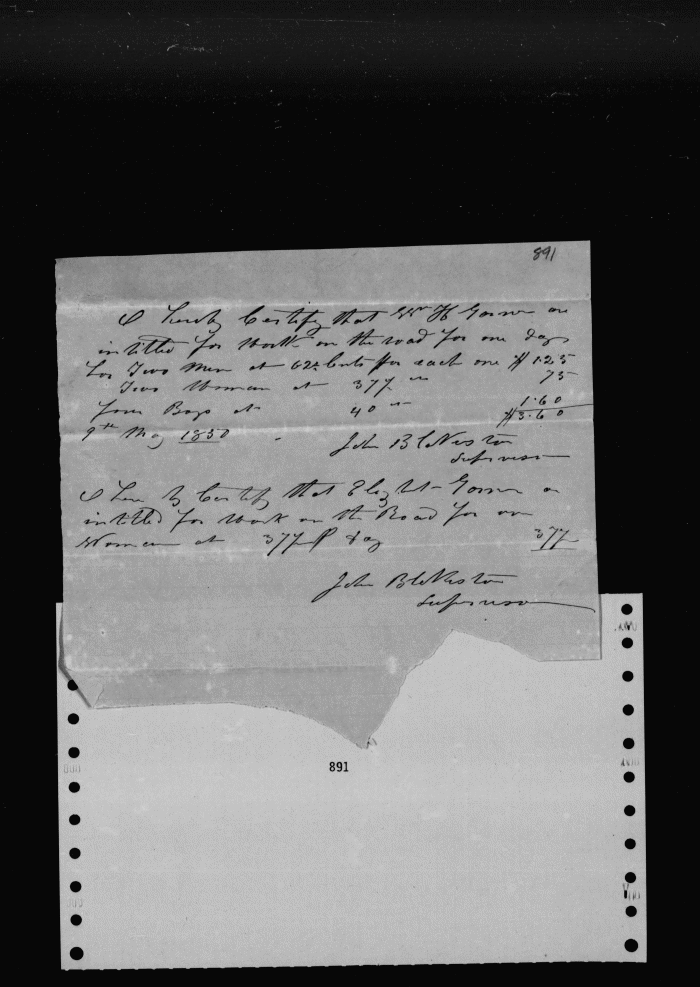 891
I hereby Certify that Wm H Gorsun are
intitled for work on the road for one day
for Two Men at 62½ Cents for each one $1.25
Two Woman at 37½ 75
four Boys at 40 1.60
$3.60
9th May 1850
John B
Supervisor
I here by Certify that Elizbt Gorsun are
intitled for work on the Road for one
Woman at 37½ P day 37½
John B
Supervisor
891